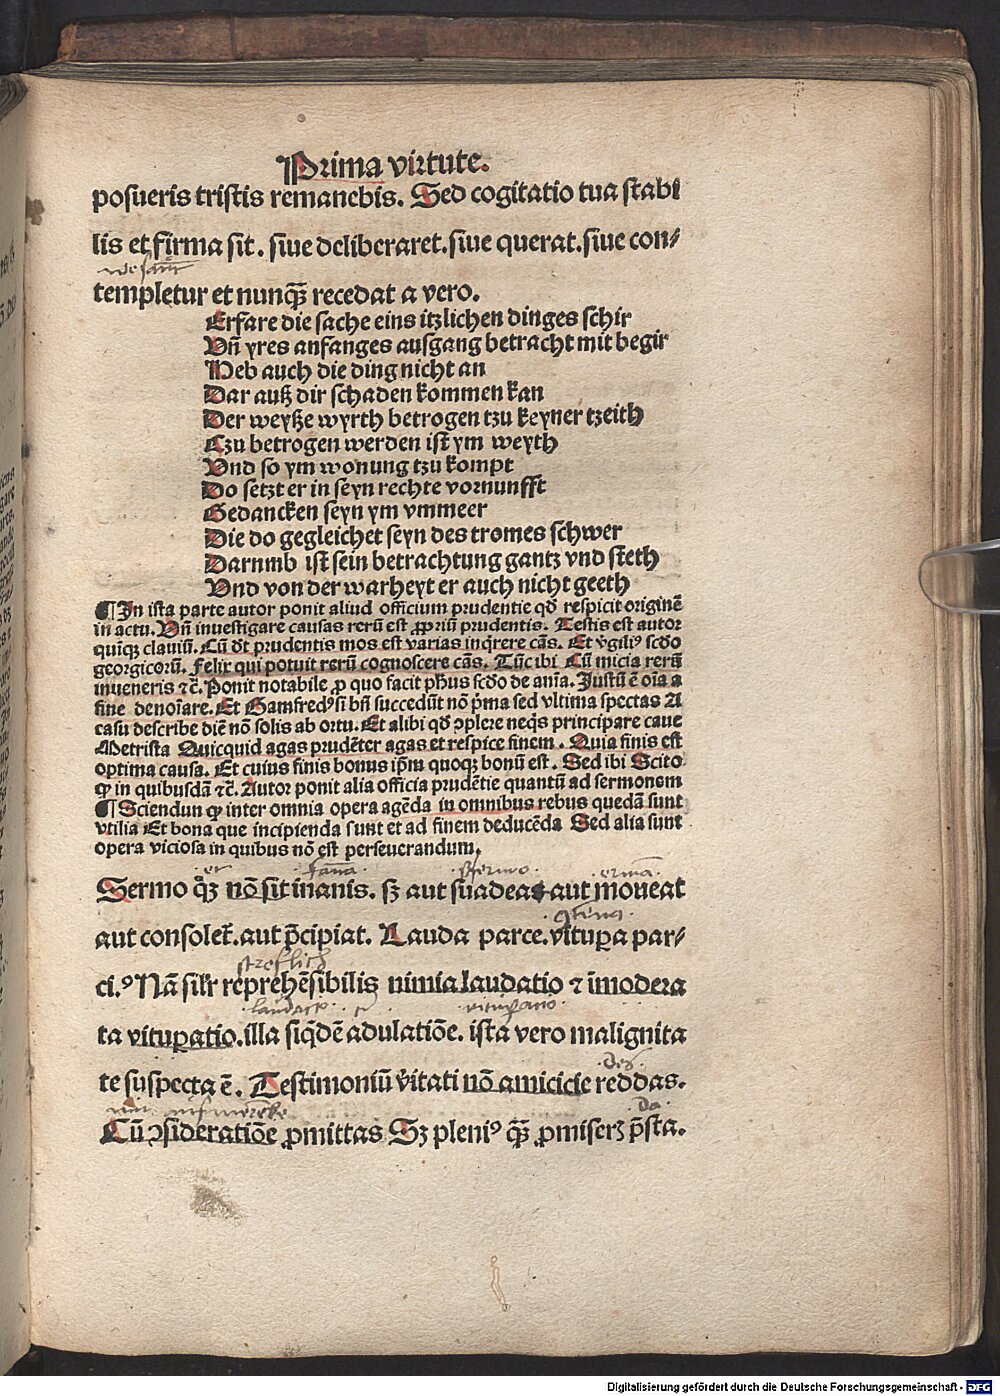 Prima virtute.
posueris tristis remanebis. Sed cogitatio tua stabi
lis et firma sit. siue deliberaret. siue querat. siue con⸗
templetur et nunq̃ꝫ recedat a vero.
Erfare die sache eins itzlichen dinges schir
Vñ yres anfanges ausgang betracht mit begir
Heb auch die ding nicht an
Dar auß dir schaden kommen kan
Der weyße wyrth betrogen tzu keyner tzeith
Czu betrogen werden ist ym weyth
Vnd so ym wonung tzu kompt
Do setzt er in seyn rechte vornunfft
Gedancken seyn ym vmmeer
Die do gegleichet seyn des tromes schwer
Darnmb ist sein betrachtung gantz vnd steth
Vnd von der warheyt er auch nicht geeth
¶ In ista parte autor ponit aliud officium prudentie qđ respicit originē
in actu. Vñ inuestigare causas rerū est ꝓpriū prudentis. Testis est autor
quiqꝫ clauiū. Cū dt̄ prudentis mos est varias inq̇rere cās. Et v̄giliꝰ scd̄o
georgicorū. Felix qui potuit rerū cognoscere cās. Tūc ibi Cū inicia rerū
inueneris ⁊c̄. Ponit notabile ꝓ quo facit ph̄us scd̄o de aīa. Justū ē oīa a
fine denoīare. Et Gamfredꝰ si bn̄ succedūt nō p̄ma sed vltima spectas A
casu describe diē nō solis ab ortu. Et alibi qđ ꝯplere neq̄s principare caue
Metrista Quicquid agas prudēter agas et respice finem. Quia finis est
optima causa. Et cuius finis bonus ip̄m quoqꝫ bonū est. Sed ibi Scito
ꝙ in quibusdā ⁊c̄. Autor ponit alia officia prudētie quantū ad sermonem
¶ Sciendun ꝙ inter omnia opera agēda in omnibus rebus quedā sunt
vtilia Et bona que incipienda sunt et ad finem deducēda Sed alia sunt
opera viciosa in quibus nō est perseuerandum,
Sermo q̊ꝫ nō sit inanis. sꝫ aut suadeas aut moueat
aut consolet᷑. aut p̄cipiat. Lauda parce. vituꝑa par⸗
ci.ꝰ Nā silr̄ reprehēsibilis nimia laudatio ⁊ īmodera
streflich
laudatio
vituperatio
ta vituꝑatio. illa siq̇dē adulatiōe. ista vero malignita
te suspecta ē. Testimoniū v̄itati nō amicicie reddas.
Cū ꝯsideratiōe ꝓmittas Sꝫ pleniꝰ q̃ꝫ ꝓmiserꝫ p̄sta.
Digitalisierung gefördert durch die Deutsche Forschungsgemeinschaft - DFG